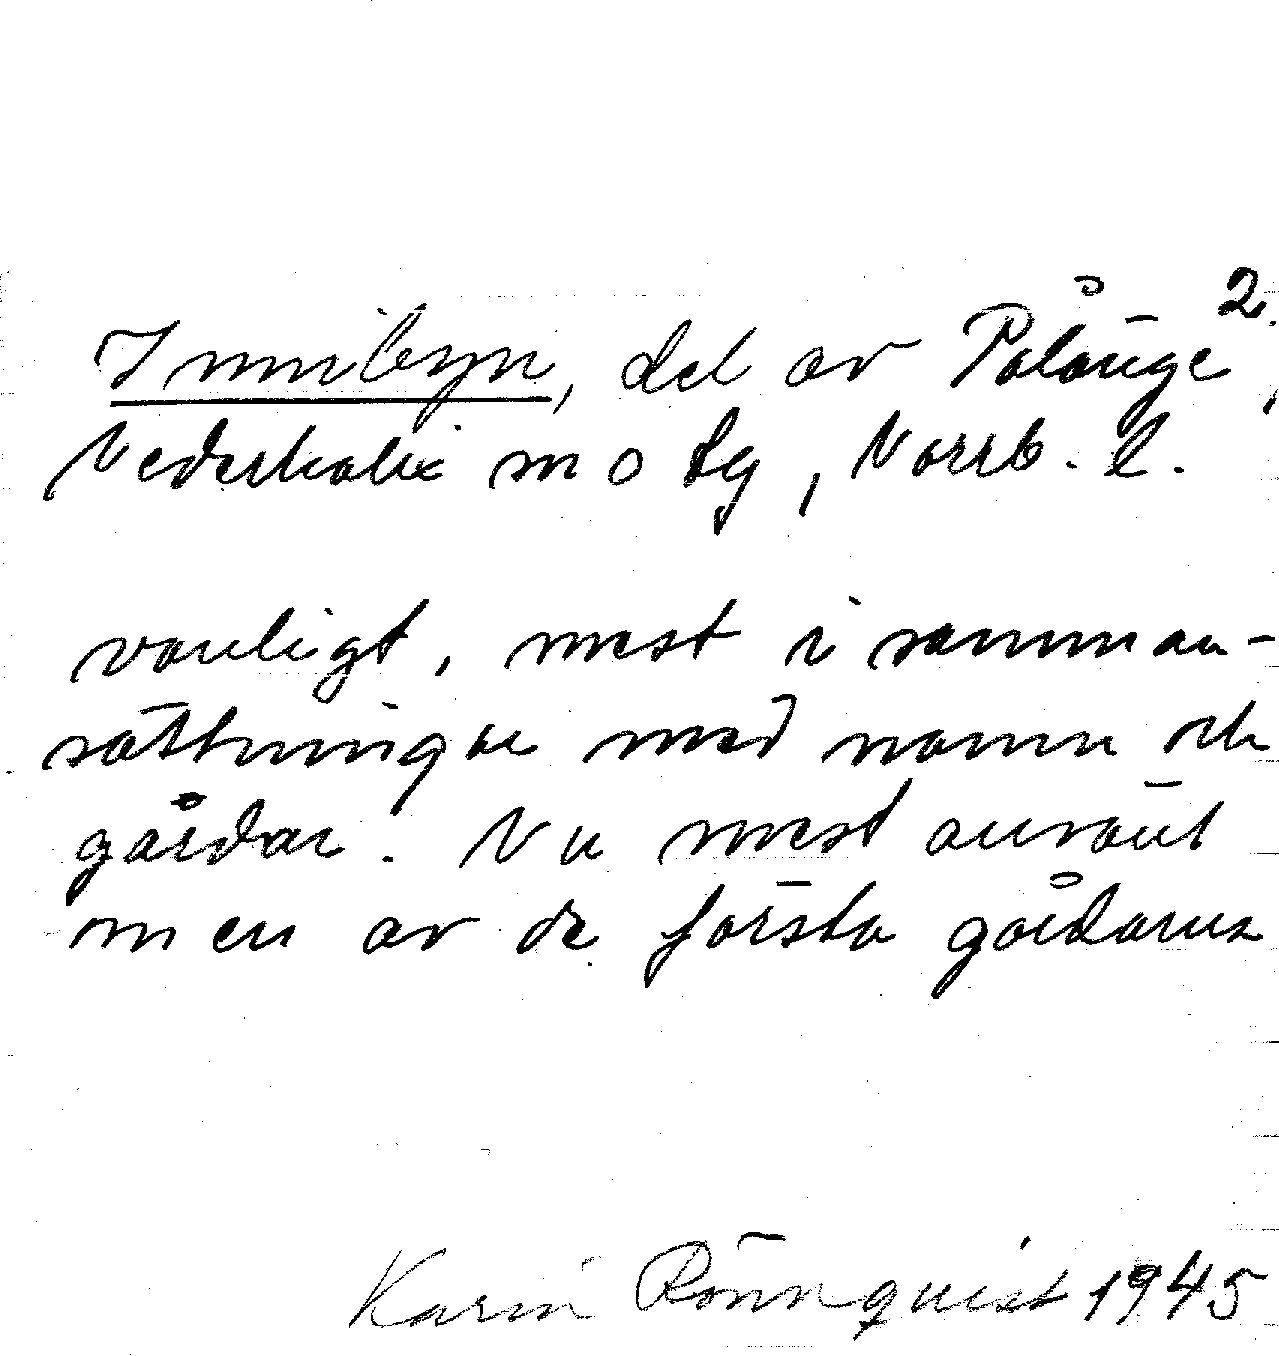 2.
Innibyn, del av Pålänge,
Nederkalix sn o tg, Norrb. l.
vanligt, mest i samman-
sättningar med namn och
gårdar. Nu mest använt
men av de första gårdarna
Karin Rönnquist 1945